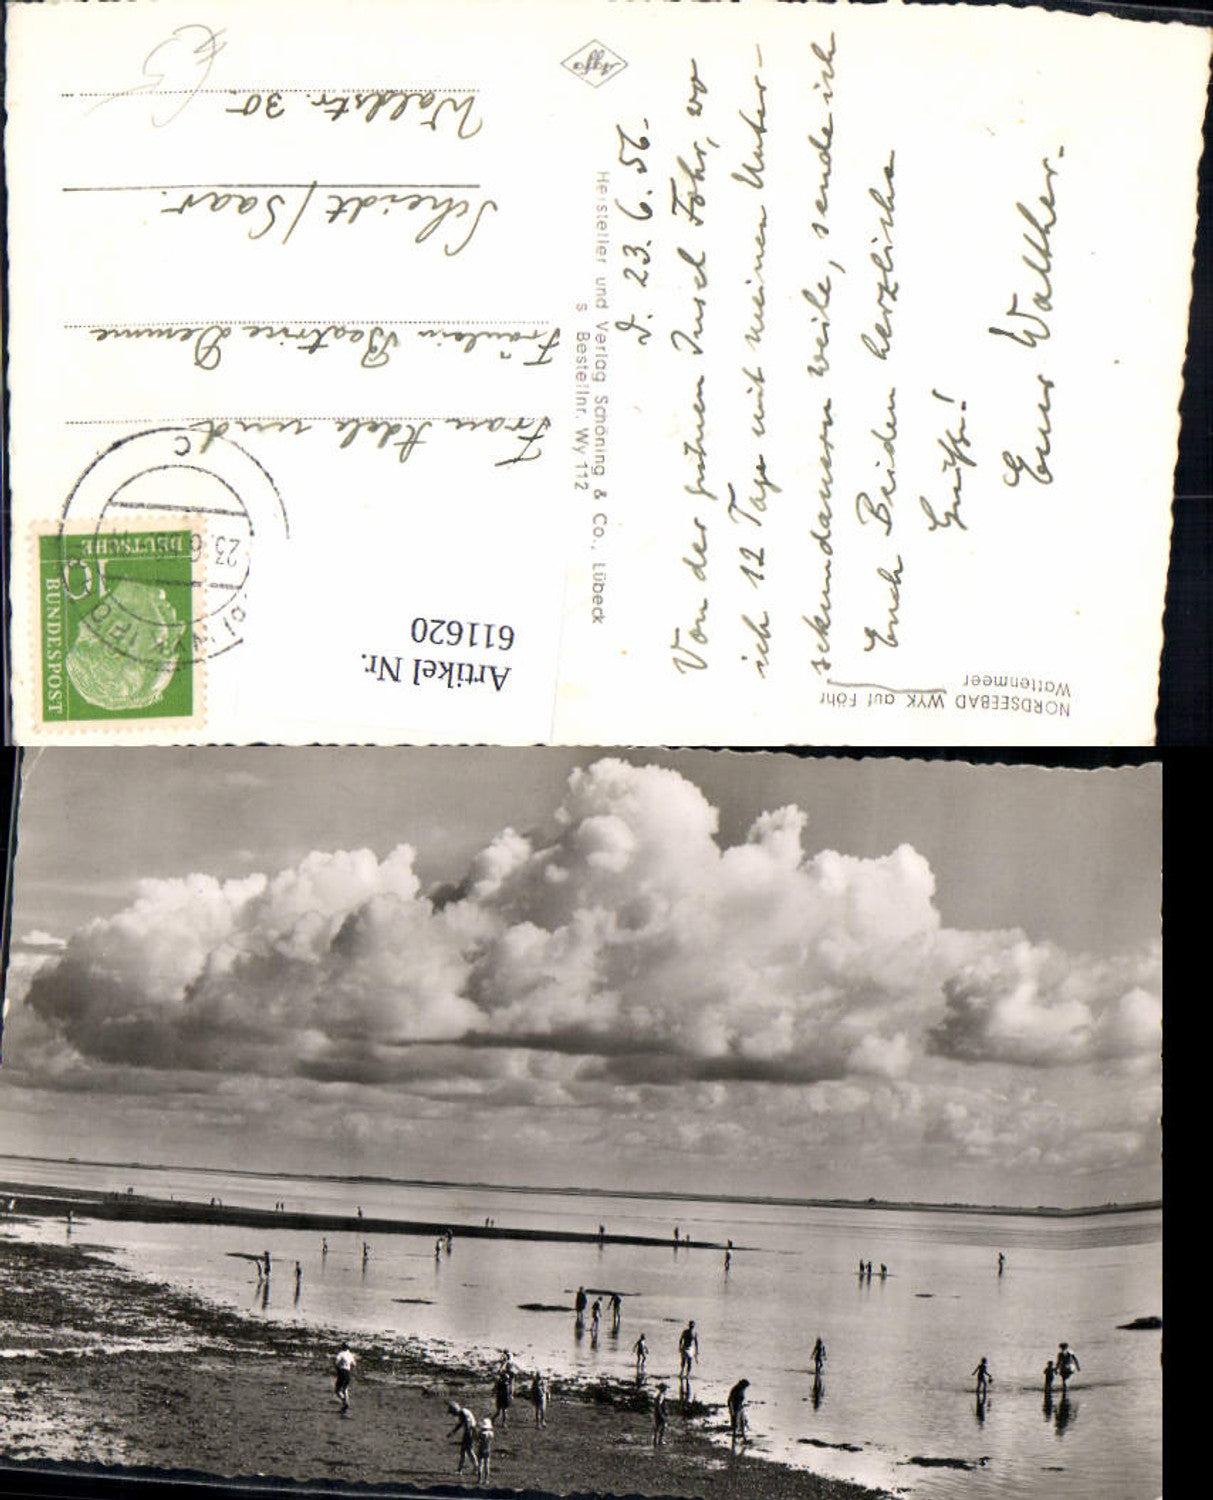 NORDSEEBAD WYK auf Föhr
Wattenmeer
d. 23.6.56.
Von der grünen Insel Föhr, wo
ich 12 Tage mit meinen Unter-
sekundanern weile, sende ich
Euch Beiden herzliche
Grüße!
Euer Walther.
Hersteller und Verlag Schöning & Co., Lübeck
S Bestellnr. Wy 112
Agfa
Artikel Nr.
611620
10
DEUTSCHE
BUNDESPOST
23.6
C
Frau Adele und
Fräulein Beatrice Demme
Scheidt/Saar.
Waldstr. 30